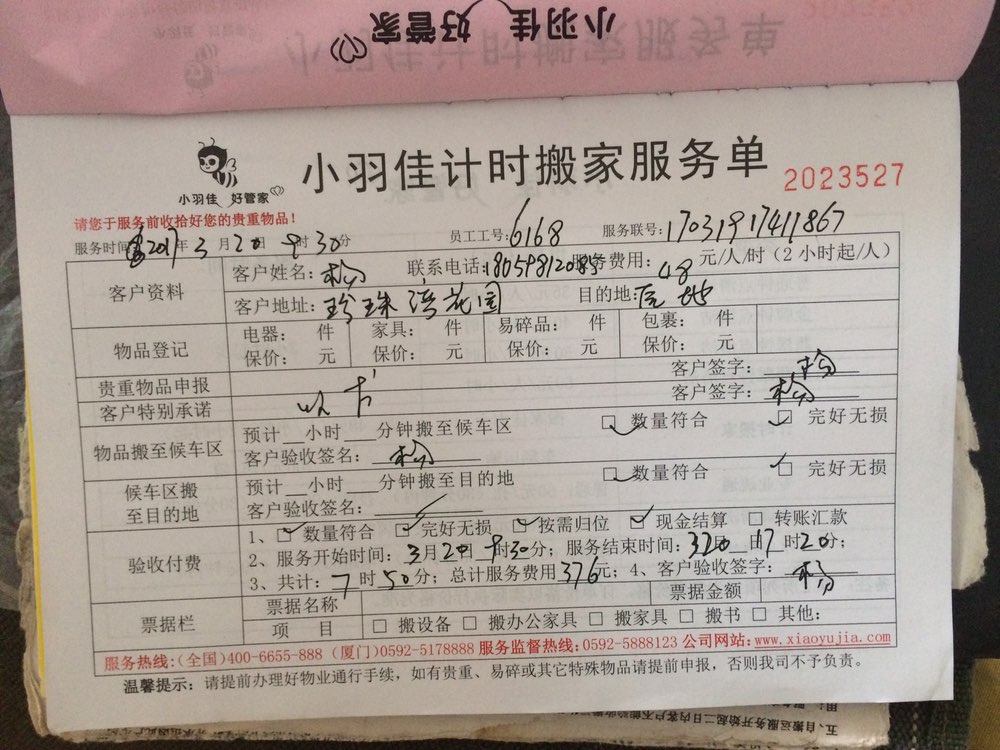 小羽佳 好管家
小羽佳计时搬家服务单
小羽佳 好管家
小羽佳计时搬家服务单
2023527
请您于服务前收拾好您的贵重物品！
服务时间 2017年3月20日9时30分 员工工号：6168 服务联号：17031917411867
客户资料
客户姓名：杨 联系电话：18059812085 服务费用：48元/人/时（2小时起/人）
客户地址：珍珠湾花园 目的地：
物品登记
电器： 件 家具： 件 易碎品： 件 包裹： 件
保价： 元 保价： 元 保价： 元 保价： 元
贵重物品申报 客户签字：杨
客户特别承诺 客户签字：杨
物品搬至候车区
预计__小时__分钟搬至候车区 ☑数量符合 ☑完好无损
客户验收签名：杨
候车区搬至目的地
预计__小时__分钟搬至目的地 ☑数量符合 ☑完好无损
客户验收签名：
验收付费
1、☑数量符合 ☑完好无损 ☑按需归位 ☑现金结算 □转账汇款
2、服务开始时间：3月20日9时30分；服务结束时间：3月20日17时20分；
3、共计：7时50分；总计服务费用376元；4、客户验收签字：杨
票据栏
票据名称 票据金额
项 目 □搬设备 □搬办公家具 □搬家具 □搬书 □其他：
服务热线：（全国）400-6655-888 （厦门）0592-5178888 服务监督热线：0592-5888123 公司网站：www.xiaoyujia.com
温馨提示：请提前办理好物业通行手续，如有贵重、易碎或其它特殊物品请提前申报，否则我司不予负责。